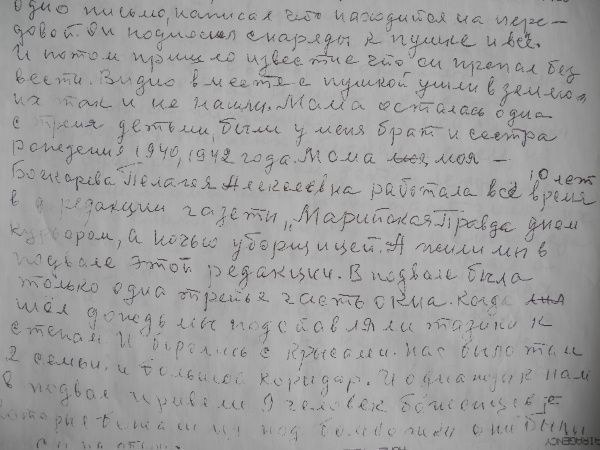 одно письмо, написал что находится на пере-
довой. Он подносил снаряды к пушке и всё.
И потом пришло известие что он пропал без
вести. Видно вместе с пушкой ушли в землю,
их так и не нашли. Мама осталась одна
с тремя детьми, были у меня брат и сестра
рождения 1940, 1942 года. Мама моя –
10 лет
Бочкарева Пелагея Алексеевна работала всё время
в редакции газеты „Марийская Правда днём
курьером, а ночью уборщицей. А жили мы в
подвале этой редакции. В подвале была
только одна третья часть окна. Когда
шёл дождь мы подставляли тазики к
стенам И боролись с крысами. Нас было там
2 семьи. и большой коридор. И однажды к нам
в подвал привели 9 человек беженцев
которые бежали из под бомбёжки они были
AIRAGENCY